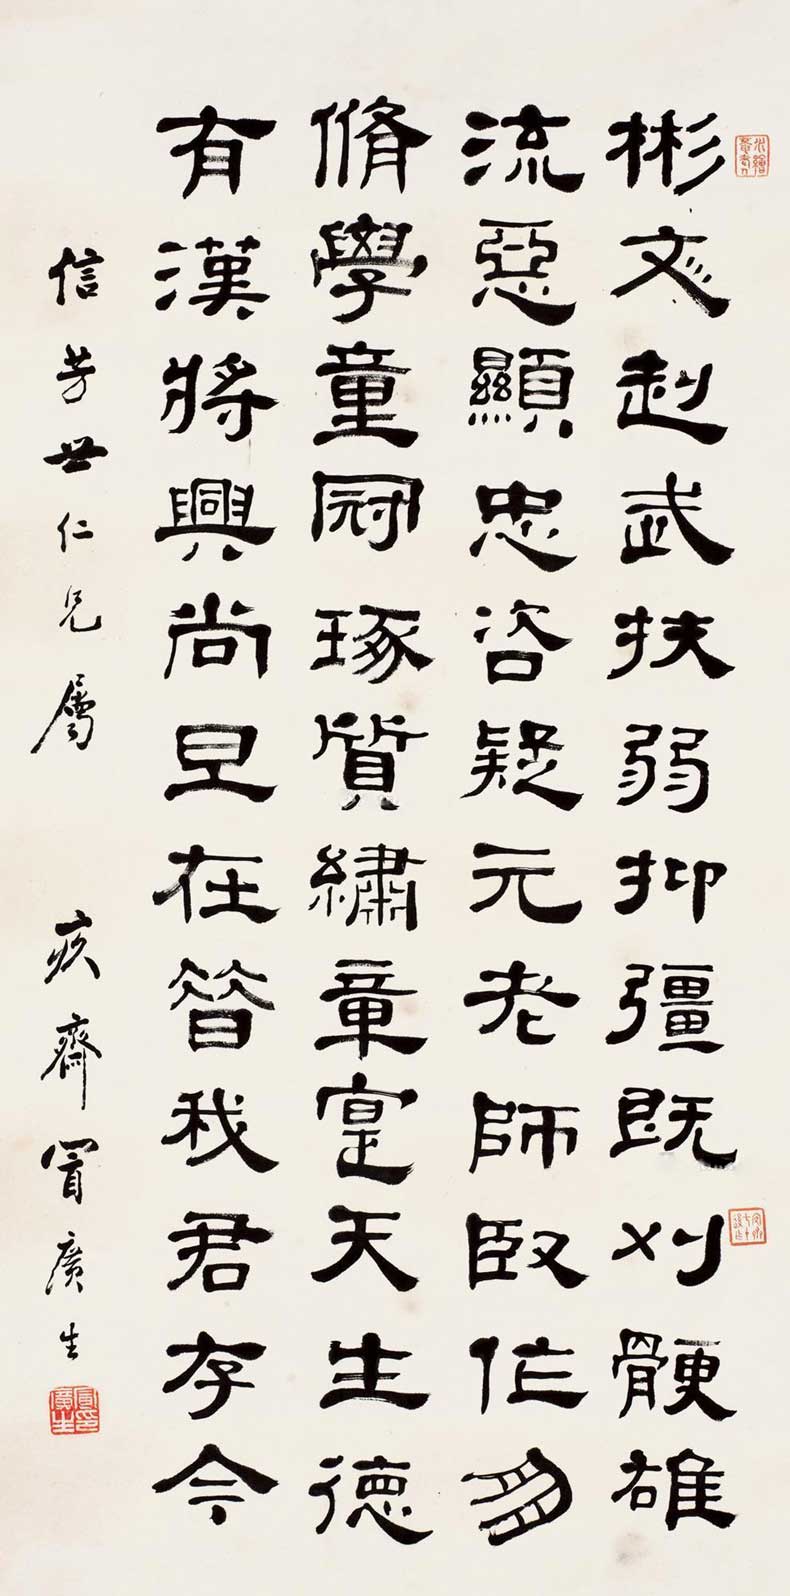 彬彣赳武扶弱抑彊既刈骾雄
流惡顯忠咨疑元老師臤作朋
脩學童冠琢質繡章寔天生德
有漢將興尚旦在昔我君存今
信芳世仁兄屬 疚齋冒廣生